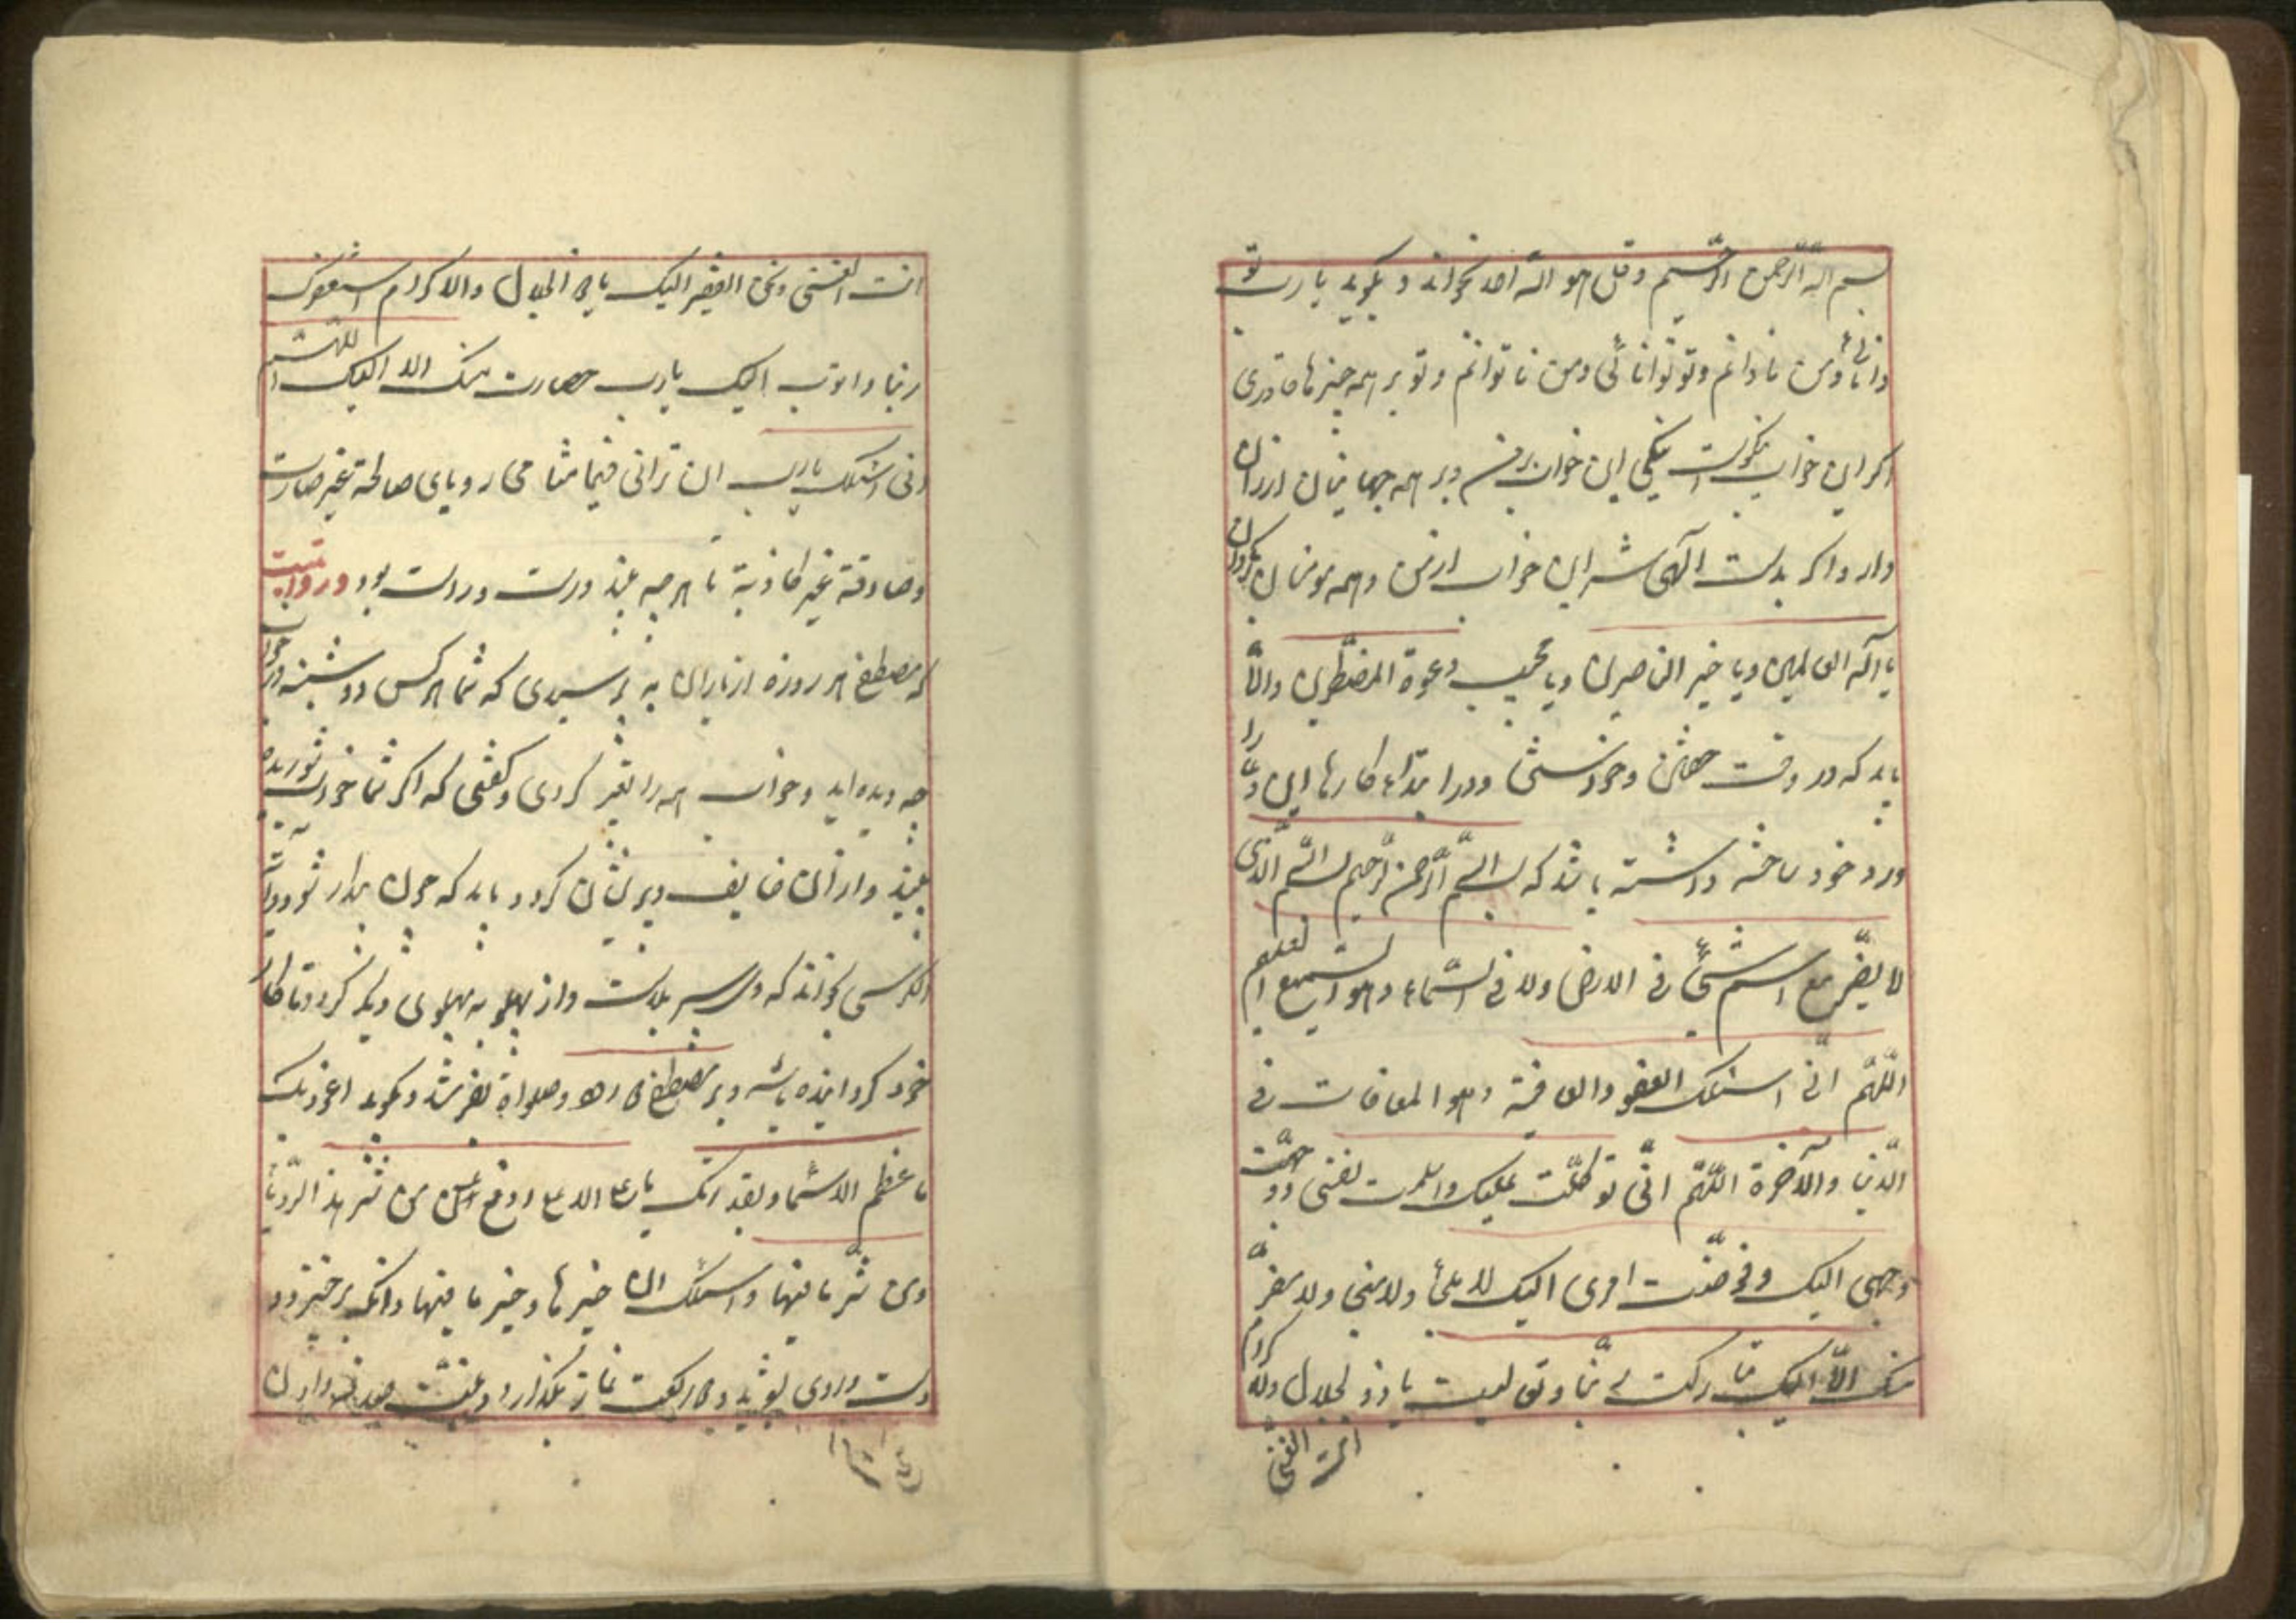 بسم الله الرحمن الرحیم وقل هو الله احد بخواند و بگوید یا رب تو
دانائی ومن نادانم وتو توانائی ومن ناتوانم وتو بر همه چیزها قادری
اکر این خواب نیکوست نیکی این خواب بر من وبر همه جهانیان ارزان
دار واکر بدست الهی شر این خواب از من وهمه مومنان بکردان
یا اله العالمین ویا خیر الناصرین ویا مجیب دعوة المضطرین والا
باید که در وقت خفتن وخواستن ودر ابتداء کارها این دعا را
ورد خود ساخته داشته باشد که بسم الله الرحمن الرحیم بسم الله الذی
لا یضر مع اسمه شئ فی الارض ولا فی السماء وهو السمیع العلیم
اللهم انی اسئلک العفو والعافیة وهو المعافات فی
الدنیا والآخرة اللهم انی توکلت علیک واسلمت نفسی ووجهت
وجهی الیک وفوضت امری الیک لا ملجأ ولا منجی ولا مفر
منک الا الیک تبارکت ربنا وتعالیت یا ذو الجلال والاکرام
انت الغنی
انت الغنی ونحن الفقیر الیک یا ذا الجلال والاکرام استغفرک
ربنا واتوب الیک یارب منک الا الیک اللهم
انی اسئلک یارب ان ترانی فیما منامی رویای صالحة غیر
وصادقة غیر کاذبة تا هر چه بیند درست وراست بود در روایتست
که مصطفی هر روزه از یاران به پرسیدی که شما هر کس دوشینه در خواب
چه دیده اید وخواب همه را تعبیر کردی وکفتی که اکر شما خواب شوریده
ببیند واز آن خایف وپریشان کردد باید که چون بیدار شود آیة
الکرسی بخواند که وی سپر بلاست واز پهلو به پهلوی دیکر کردد تا کار
خود کردانیده باشد وبر مصطفی وصلواة بفرستد وبکوید اعوذ بک
هذا الرویا
ومن شر ما فیها واسئلک خیرها وخیر ما فیها وانکه برخیزد و
دست وروی بشوید و رکعت نماز بکذارد